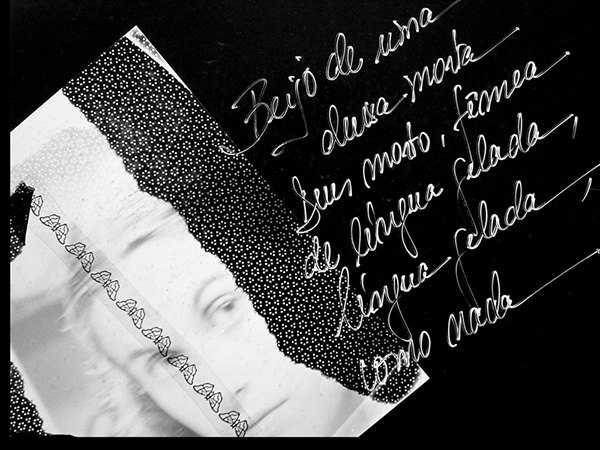 Beijo de uma
deusa morta
Deus morto, fêmea
de língua gelada,
língua gelada,
como nada